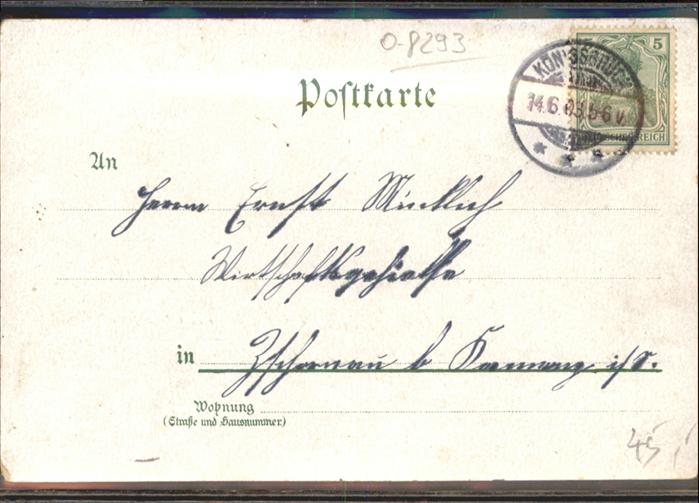 O-8293
5
KÖNIGSBRÜCK
14.6.03.5-6V.
DEUTSCHES REICH
Postkarte
An
Herrn Ernst
Wirtschaftsgehülfe
in Zschornau b Kamenz i/S.
Wohnung
(Straße und Hausnummer)
45,-